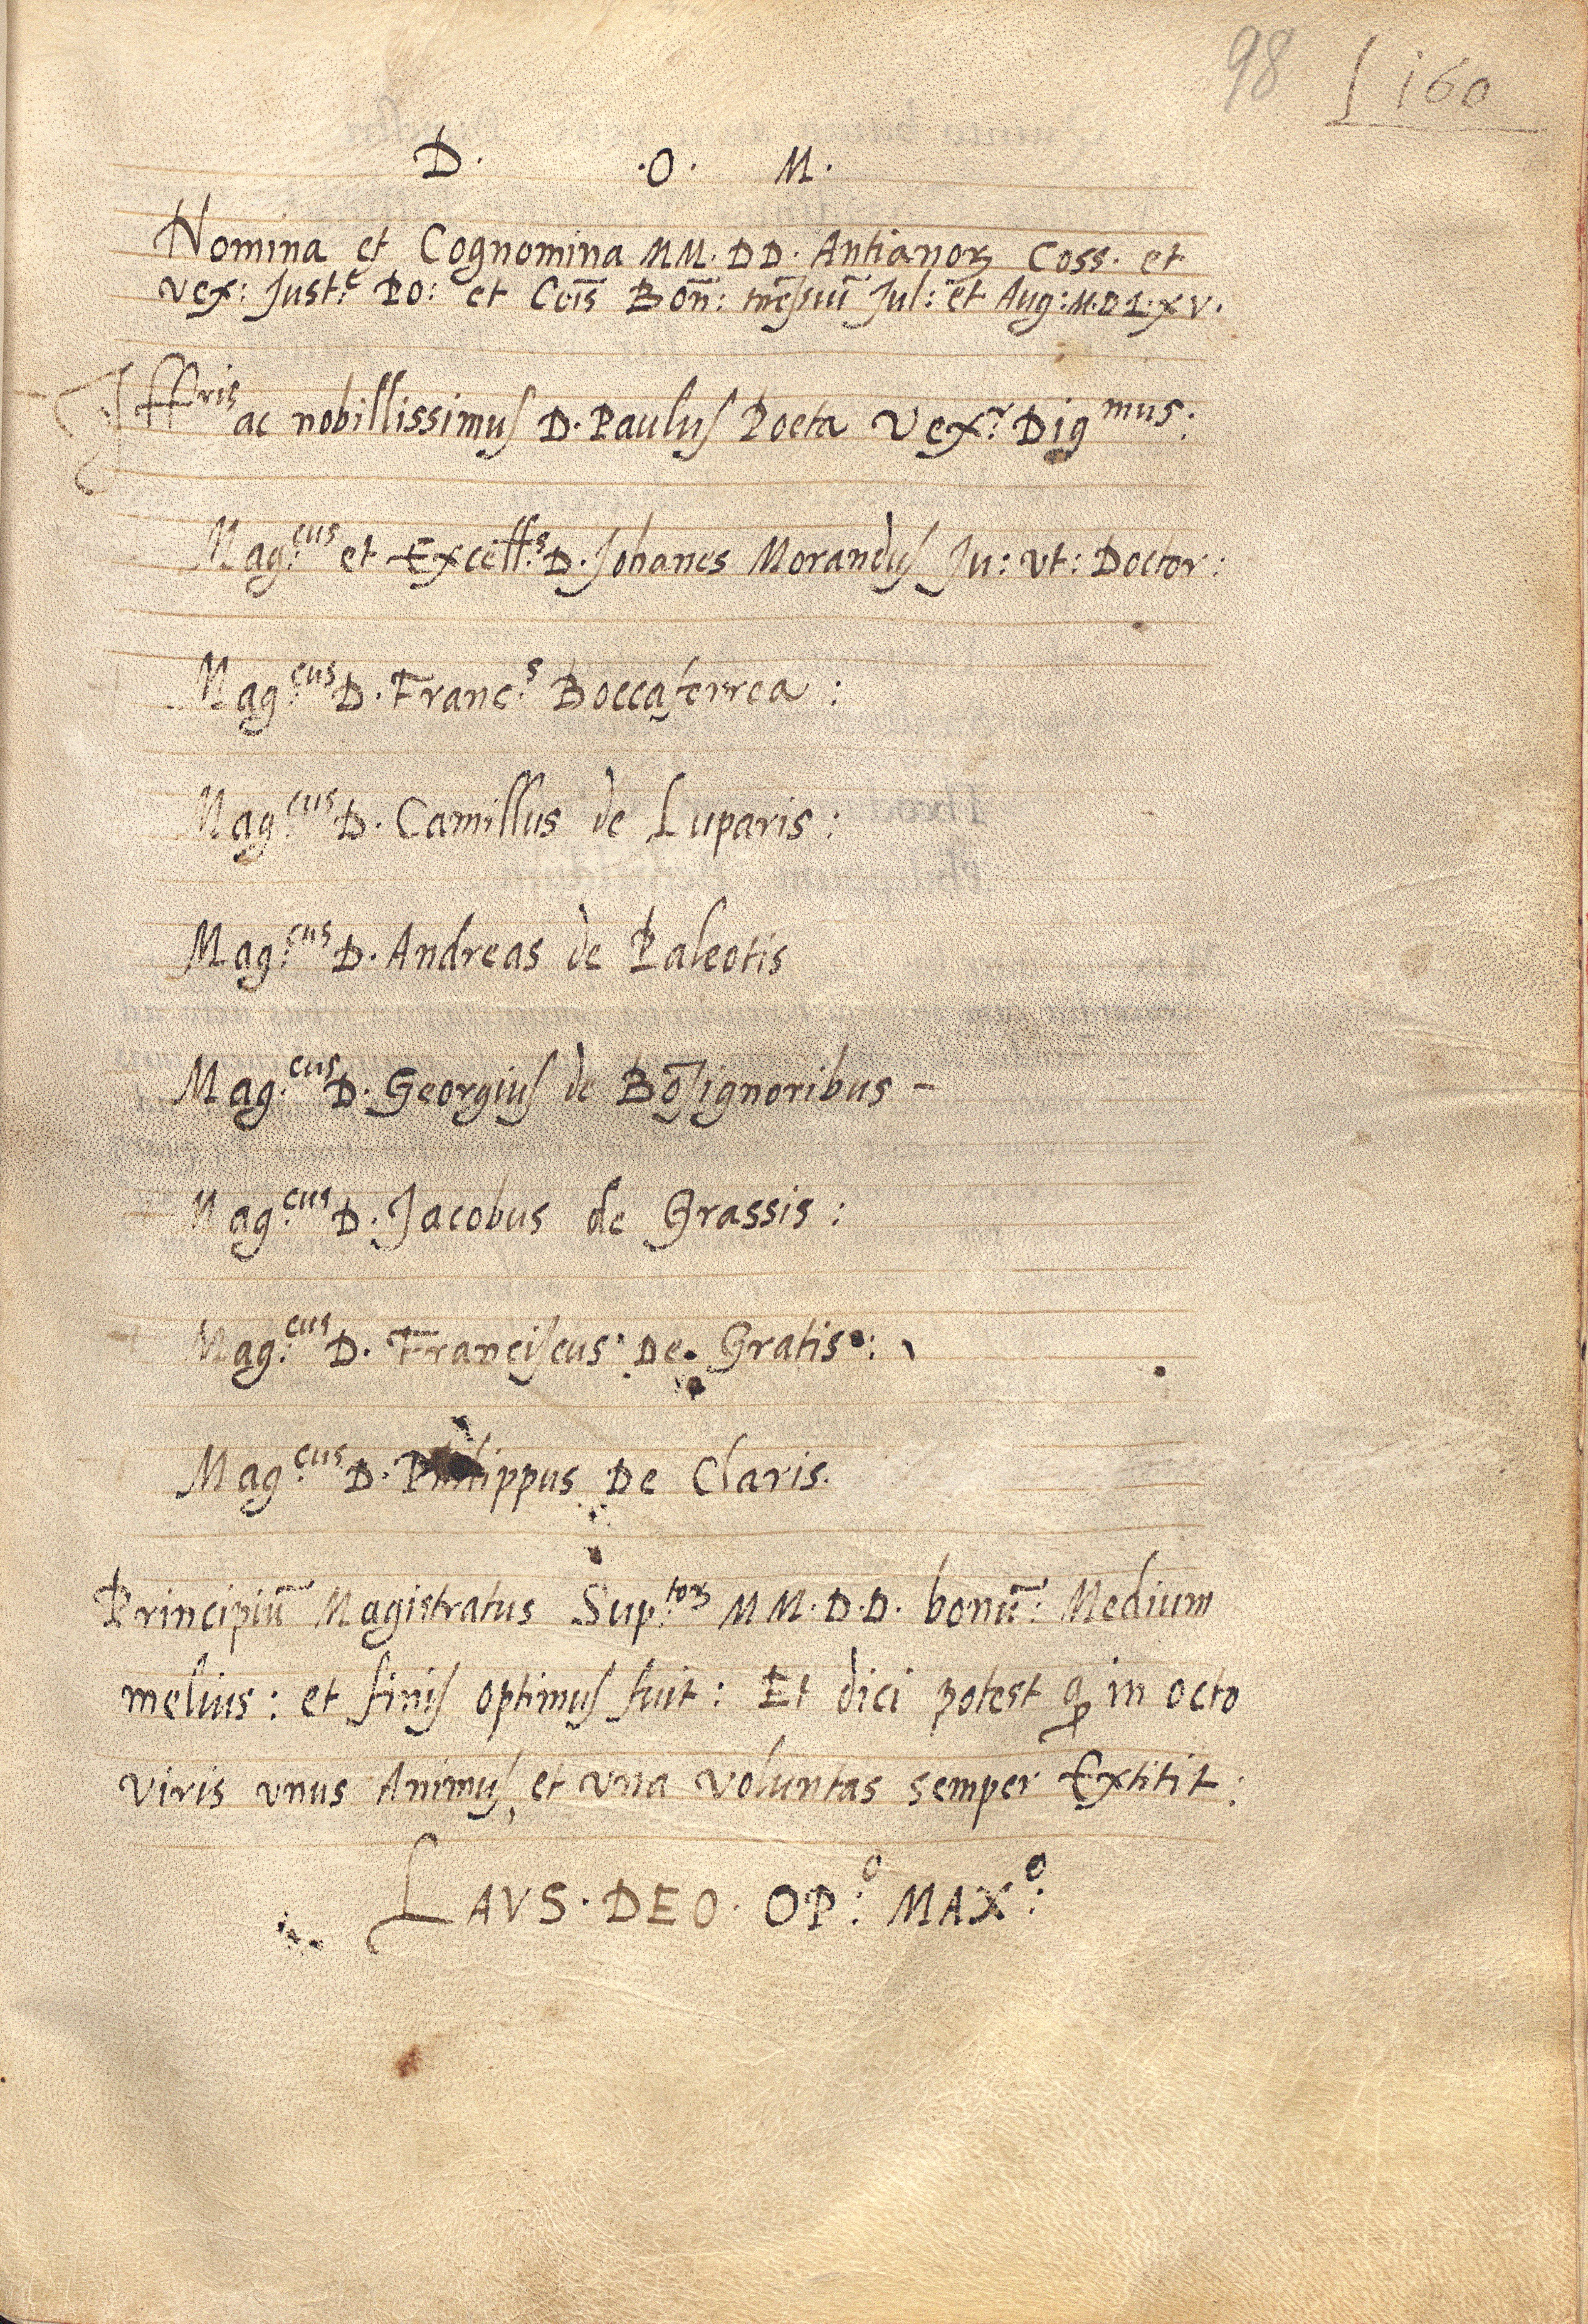 98 160
D. .O. M.
Nomina et Cognomina MM. DD. Antianoꝝ Coss. et
vex: Just:e PO: et Cōis Bōn: mēsiū Jul: et Aug: M.D.L.XV.
Illris ac nobillissimus D. Paulus Poeta Vex:r Dig mus:
Mag:cus et Excell:s D. Johanes Morandus Ju: vt: Doctor:
Mag:cus D. Franc:s Boccaferrea:
Mag:cus D. Camillus de Luparis:
Mag:cus D. Andreas de Paleotis
Mag:cus D. Georgius de Bōsignoribus -
Mag:cus D. Jacobus de Grassis:
Mag:cus D. Franciscus De Gratis:
Mag:cus D. Philippus De Claris.
Principiū Magistratus Sup:toꝝ MM. D.D. bonū: Medium
melius: et finis optimus fuit: Et dici potest ꝙ in octo
viris vnus Animus, et vna voluntas semper Extitit:
LAVS. DEO. OP:o MAX:o